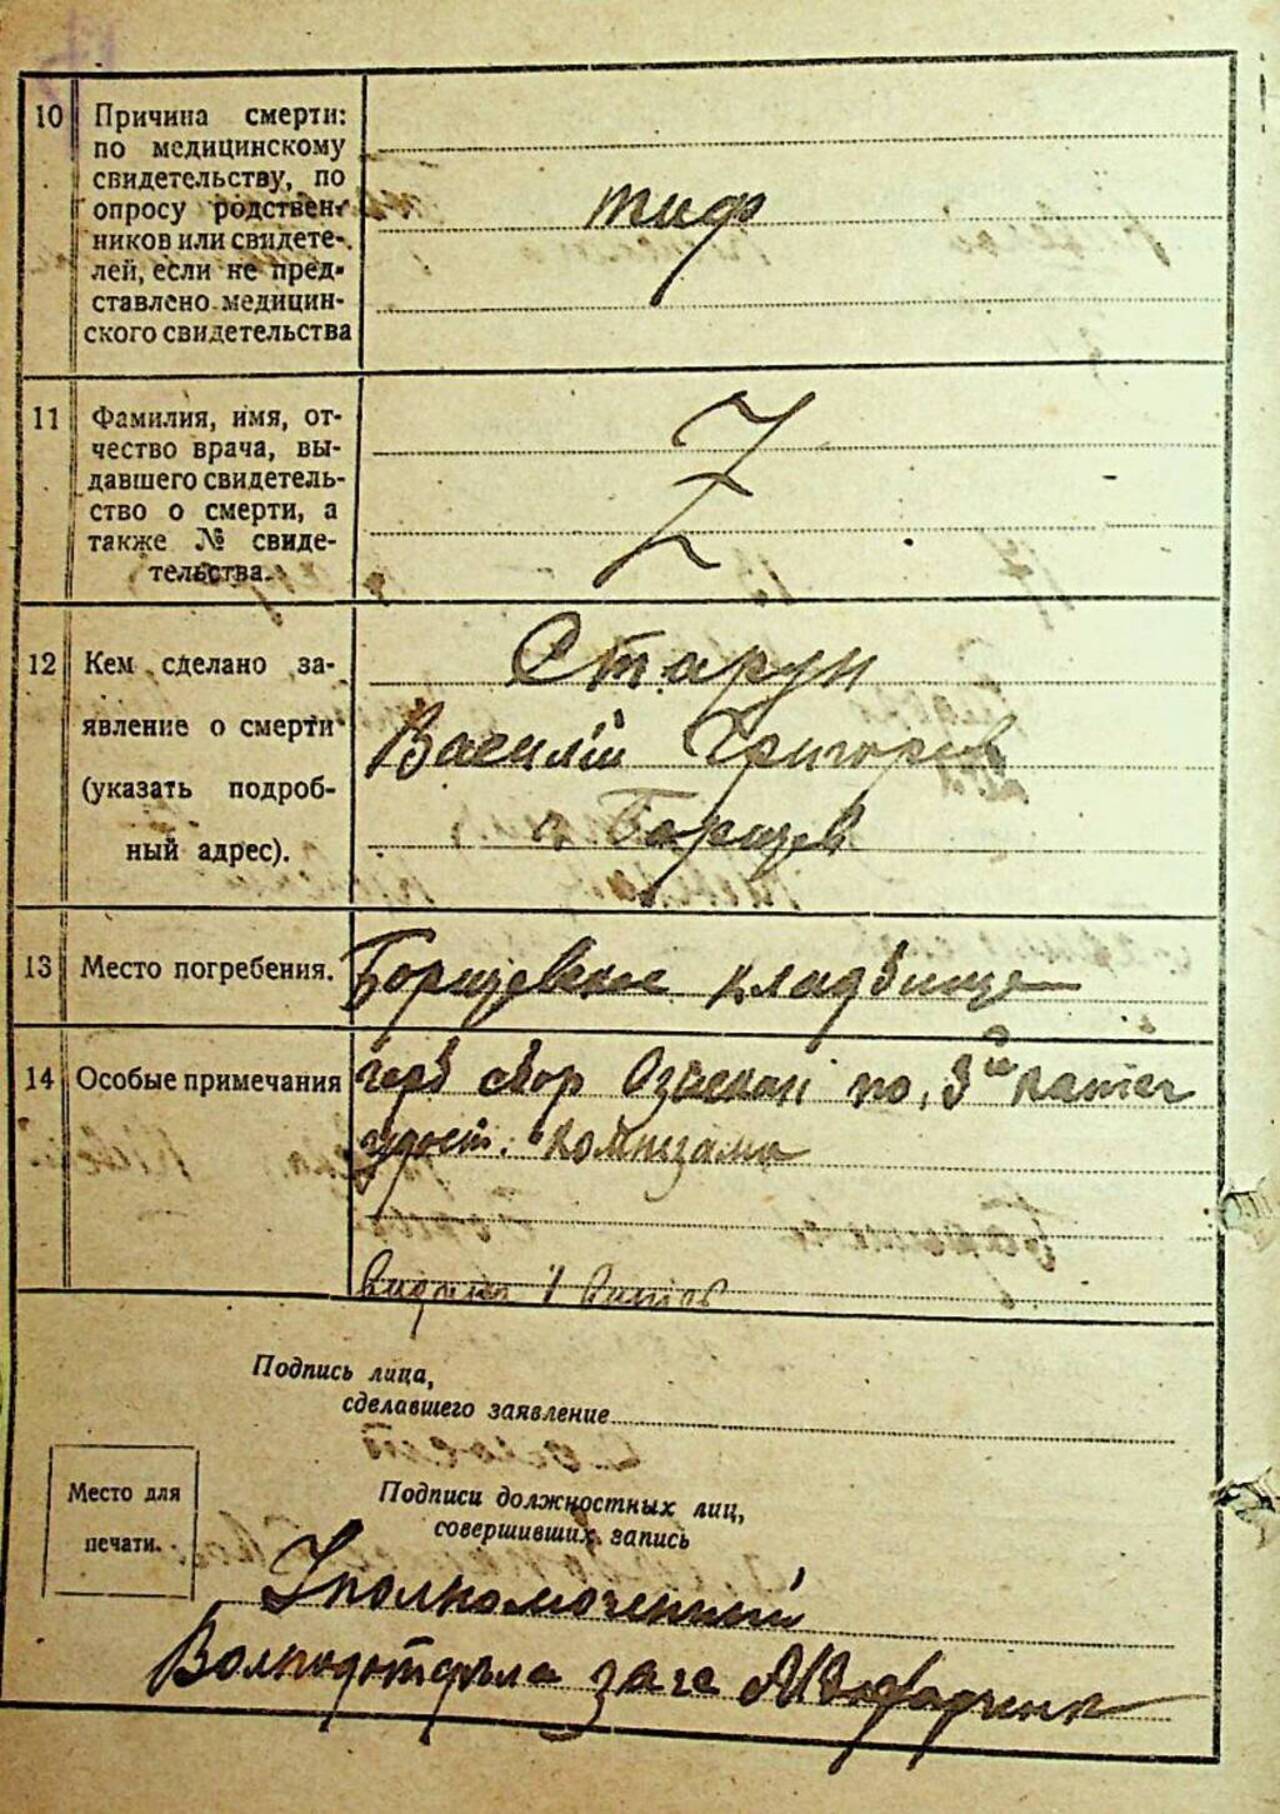 10 Причина смерти:
по медицинскому
свидетельству, по
опросу родствен-
ников или свидете-
лей, если не пред-
ставлено медицин-
ского свидетельства
тиф
11 Фамилия, имя, от-
чество врача, вы-
давшего свидетель-
ство о смерти, а
также № свиде-
тельства.
Z
12 Кем сделано за-
явление о смерти
(указать подроб-
ный адрес).
Старун
Василій Григорьев
с. Борщев
13 Место погребения.
Борщевское кладбище
14 Особые примечания
герб сбор по 3й катег
удост. комнезама
Подпись лица,
сделавшего заявление
Место для
печати.
Подписи должностных лиц,
совершивших запись
Уполномоченный
Волподотдела загс